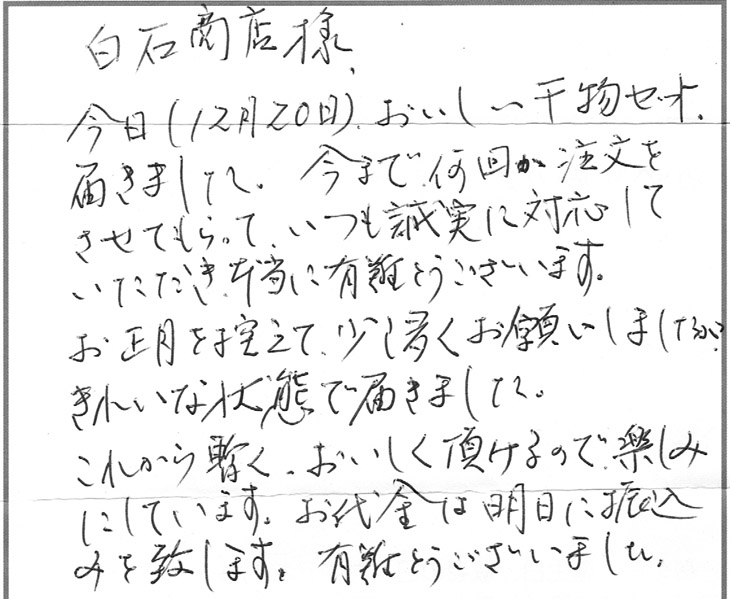 白石商店様
今日(12月20日)、おいしい干物セット、
届きました。今まで何回か注文を
させてもらって、いつも誠実に対応して
いただき本当に有難とうございます。
お正月を控えて、少し多くお願いしましたが
きれいな状態で届きました。
これから暫く、おいしく頂けるので楽しみ
にしています。お代金は明日に振込
みを致します。有難とうございました。